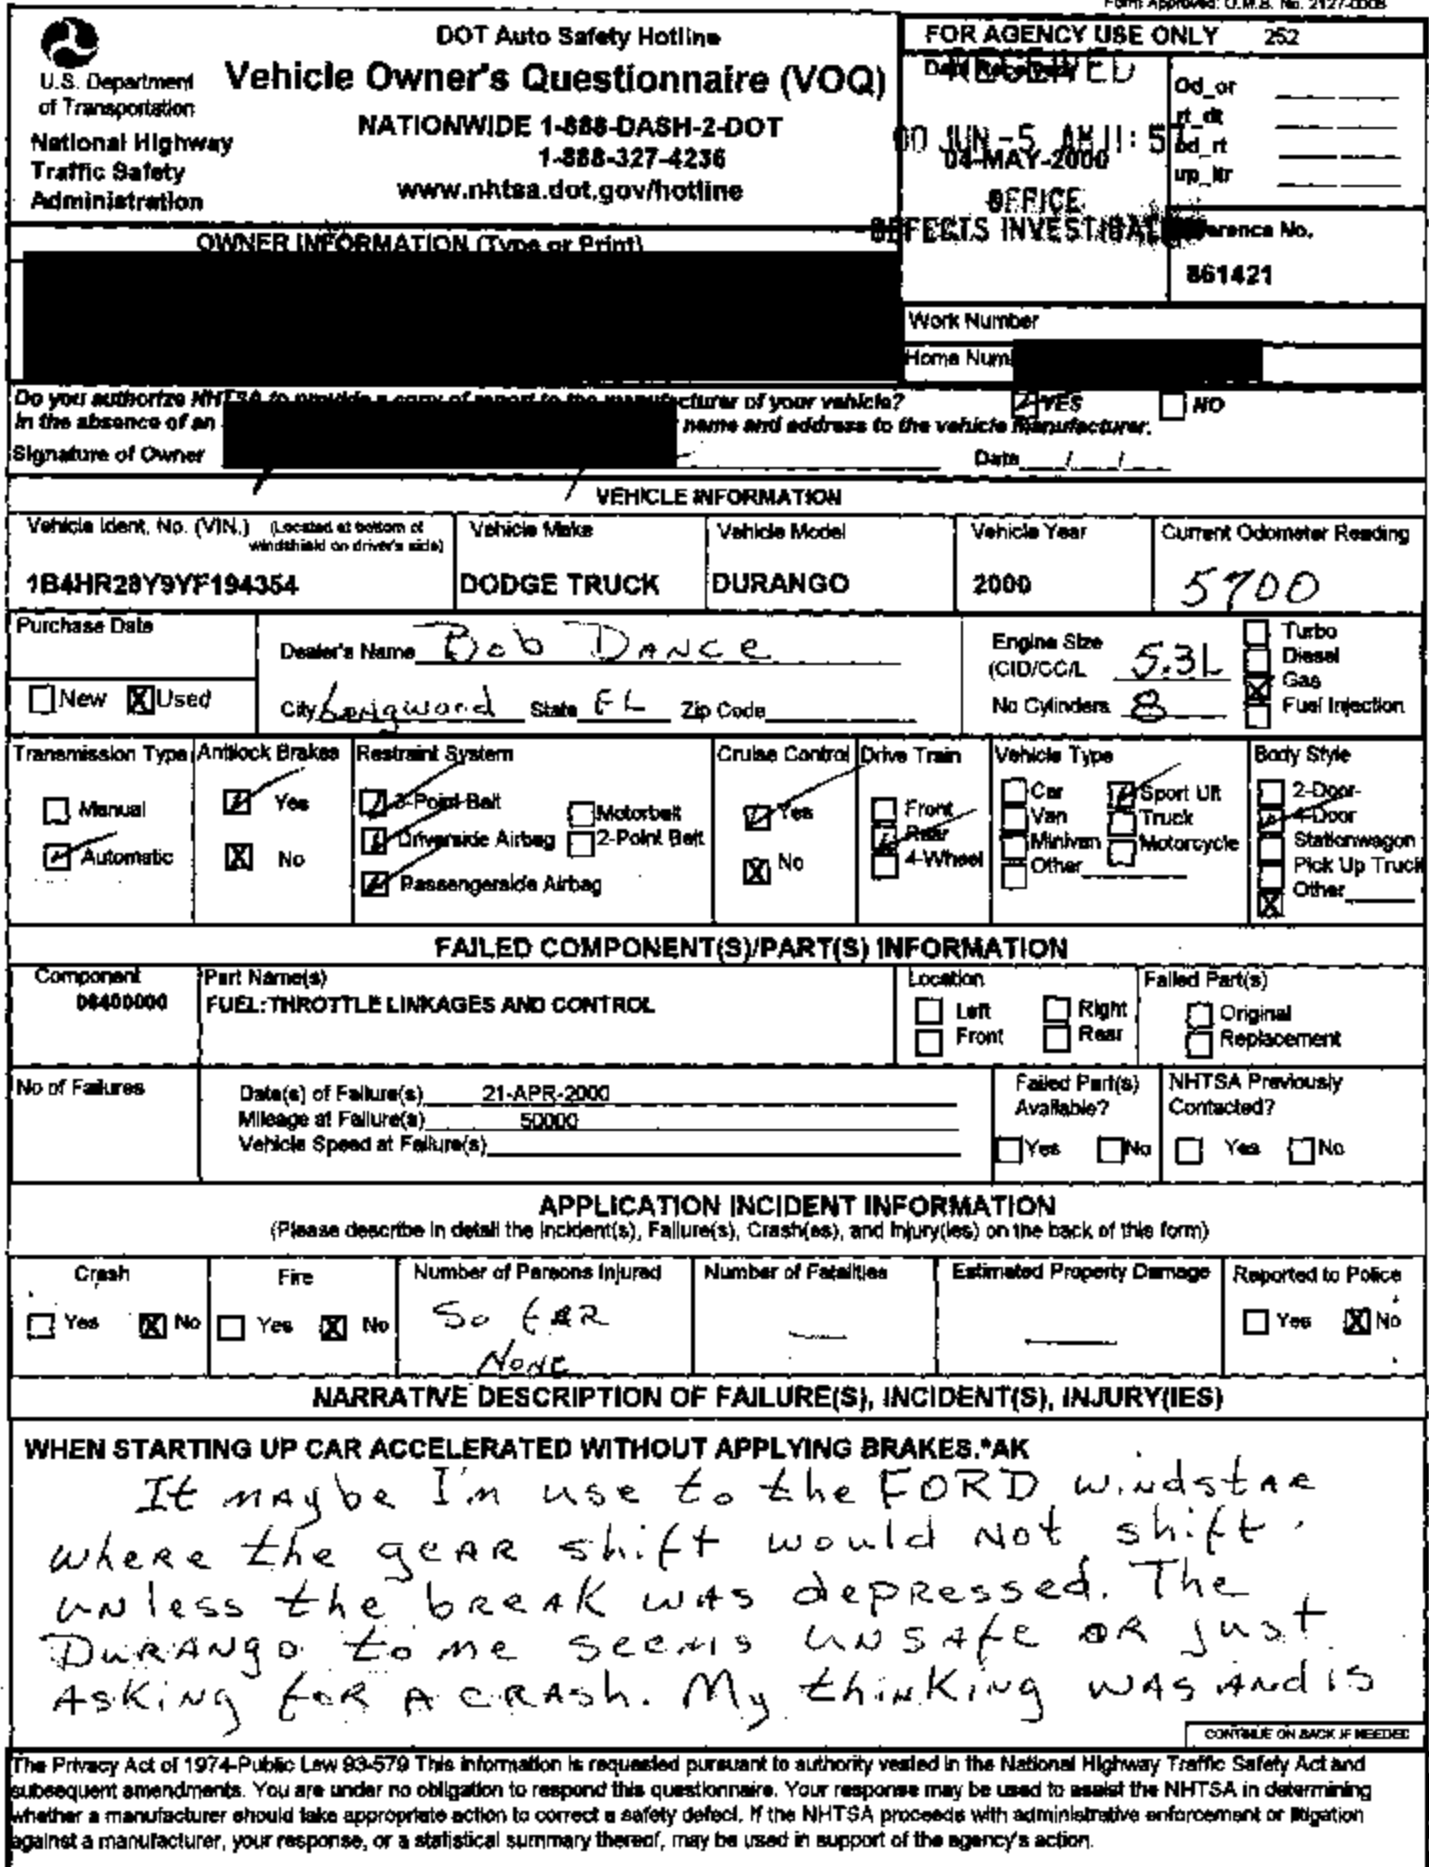 Form Approved: O.M.B. No. 2127-0008
U.S. Department
of Transportation
National Highway
Traffic Safety
Administration
DOT Auto Safety Hotline
Vehicle Owner's Questionnaire (VOQ)
NATIONWIDE 1-888-DASH-2-DOT
1-888-327-4236
www.nhtsa.dot.gov/hotline
FOR AGENCY USE ONLY 252
RECEIVED
00 JUN -5 AM 11: 5
04-MAY-2000
OFFICE
DEFECTS INVESTIGAT
Od_or
rt_dt
od_rt
up_ltr
erence No.
861421
OWNER INFORMATION (Type or Print)
Work Number
Home Num
Do you authorize NHTSA to provide a copy of report to the manufacturer of your vehicle? YES NO
In the absence of an name and address to the vehicle manufacturer.
Signature of Owner Date / /
VEHICLE INFORMATION
Vehicle Ident. No. (VIN.) (Located at bottom of windshield on driver's side)
1B4HR28Y9YF194354
Vehicle Make
DODGE TRUCK
Vehicle Model
DURANGO
Vehicle Year
2000
Current Odometer Reading
5700
Purchase Date
New X Used
Dealer's Name Bob Dance
City Longwood State FL Zip Code
Engine Size
(CID/CC/L 5.3L
No Cylinders 8
Turbo
Diesel
X Gas
Fuel Injection
Transmission Type
Manual
Automatic
Antilock Brakes
Yes
X No
Restraint System
3-Point Belt
Driverside Airbag
Passengerside Airbag
Motorbelt
2-Point Belt
Cruise Control
Yes
X No
Drive Train
Front
Rear
4-Wheel
Vehicle Type
Car
Van
Minivan
Other
Sport Utl
Truck
Motorcycle
Body Style
2-Door
4-Door
Stationwagon
Pick Up Truck
X Other
FAILED COMPONENT(S)/PART(S) INFORMATION
Component
06400000
Part Name(s)
FUEL:THROTTLE LINKAGES AND CONTROL
Location
Left Right
Front Rear
Failed Part(s)
Original
Replacement
No of Failures
Date(s) of Failure(s) 21-APR-2000
Mileage at Failure(s) 50000
Vehicle Speed at Failure(s)
Failed Part(s)
Available?
Yes No
NHTSA Previously
Contacted?
Yes No
APPLICATION INCIDENT INFORMATION
(Please describe in detail the incident(s), Failure(s), Crash(es), and Injury(ies) on the back of this form)
Crash
Yes X No
Fire
Yes X No
Number of Persons Injured
So far
None
Number of Fatalities
Estimated Property Damage
Reported to Police
Yes X No
NARRATIVE DESCRIPTION OF FAILURE(S), INCIDENT(S), INJURY(IES)
WHEN STARTING UP CAR ACCELERATED WITHOUT APPLYING BRAKES.*AK
It maybe I'm use to the FORD windstar
where the gear shift would not shift
unless the break was depressed. The
Durango to me seems unsafe or just
asking for a crash. My thinking was and is
CONTINUE ON BACK IF NEEDED
The Privacy Act of 1974-Public Law 93-579 This information is requested pursuant to authority vested in the National Highway Traffic Safety Act and
subsequent amendments. You are under no obligation to respond this questionnaire. Your response may be used to assist the NHTSA in determining
whether a manufacturer should take appropriate action to correct a safety defect. If the NHTSA proceeds with administrative enforcement or litigation
against a manufacturer, your response, or a statistical summary thereof, may be used in support of the agency's action.